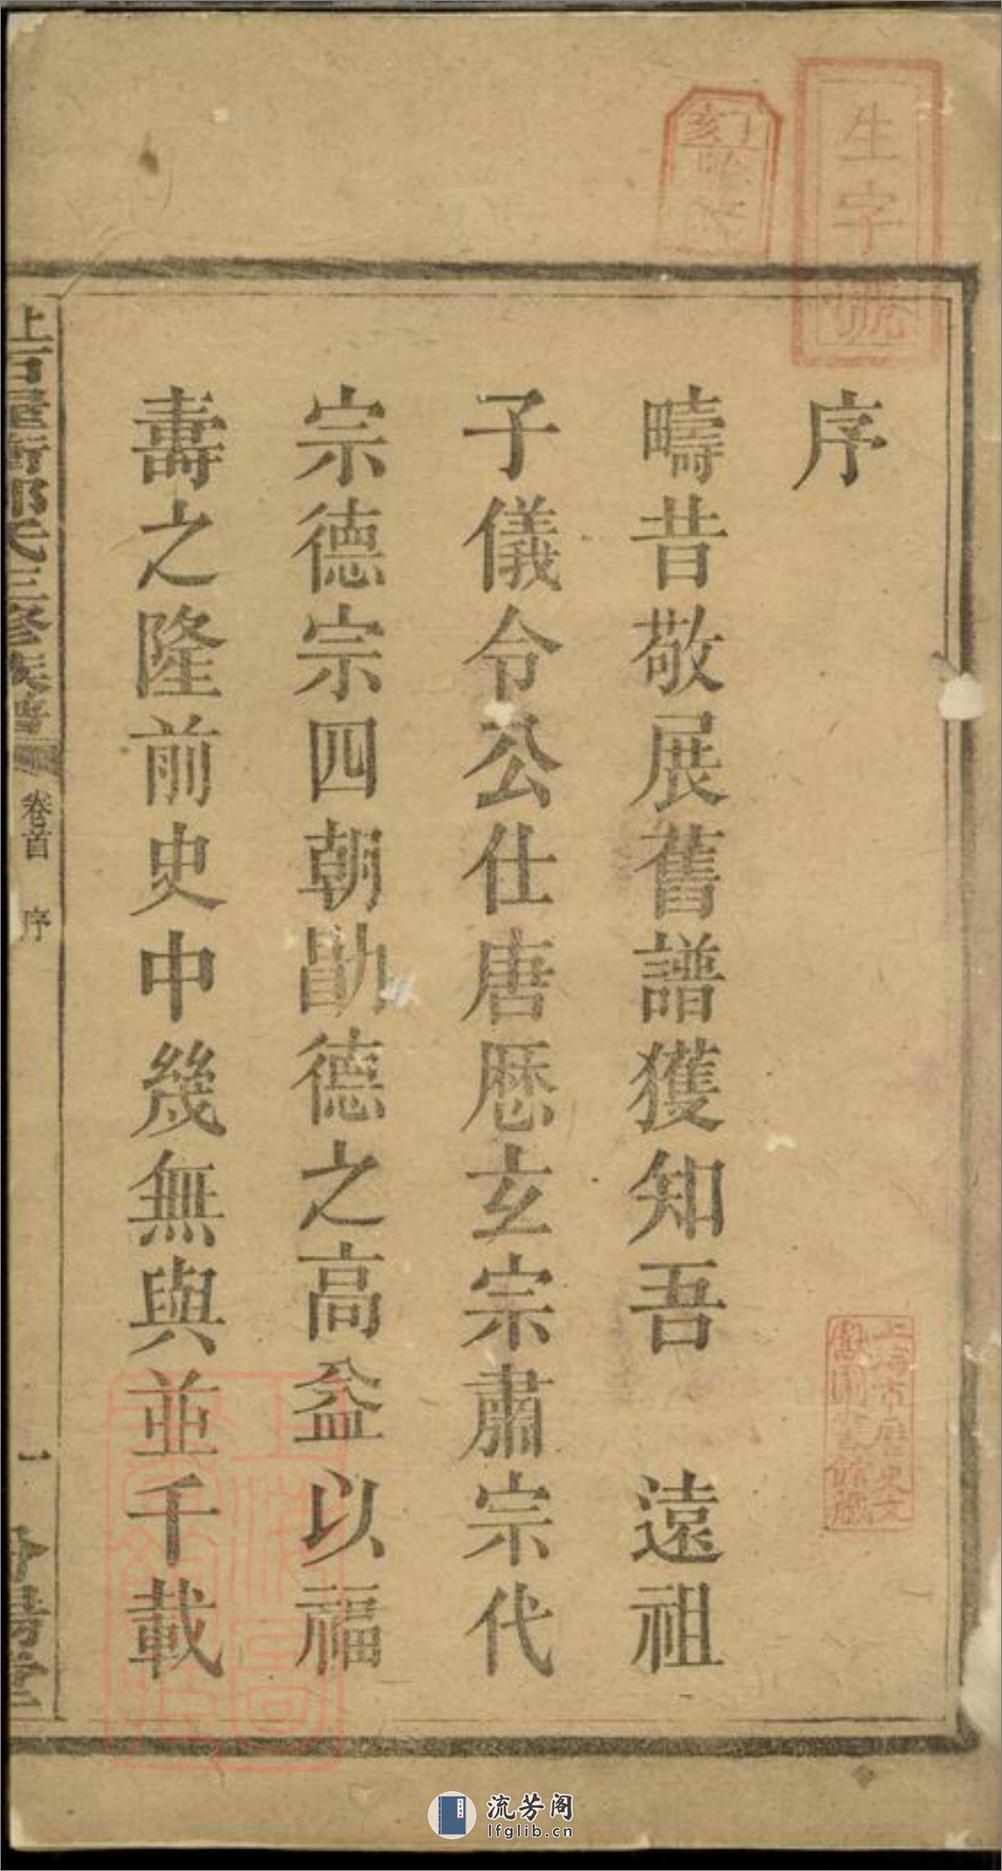 生字號
序
疇昔敬展舊譜獲知吾　遠祖
子儀令公仕唐厯玄宗肅宗代
宗德宗四朝勛德之高益以福
壽之隆前史中幾無與並千載
上石星街郭氏三修族譜
卷首
序
一
上海市歷史文
獻圖書館藏
上海圖
書館藏
流芳阁
lfglib.cn